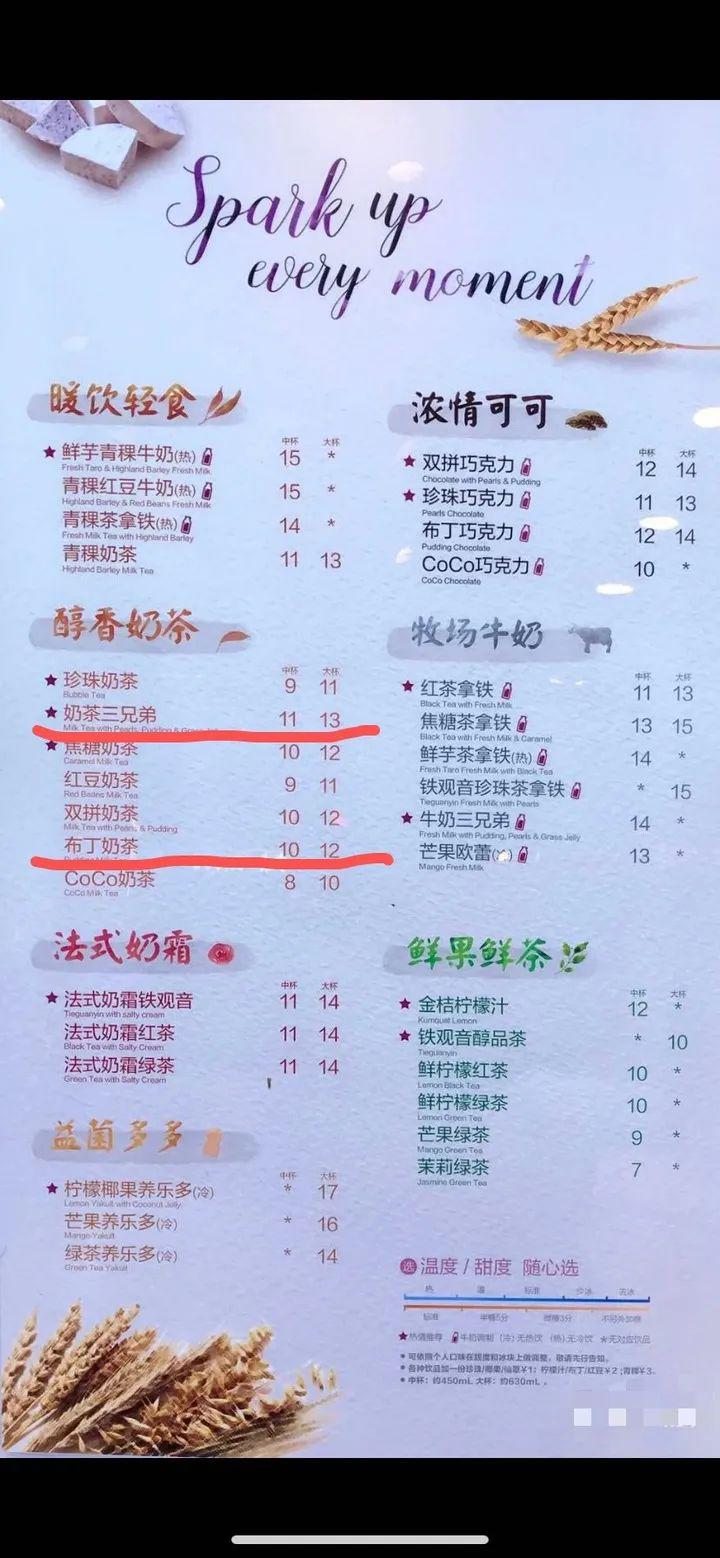 Spark up
every moment
暖饮轻食
中杯 大杯
鲜芋青稞牛奶(热) 15 *
Fresh Taro & Highland Barley Fresh Milk
青稞红豆牛奶(热) 15 *
Highland Barley & Red Beans Fresh Milk
青稞茶拿铁(热) 14 *
Fresh Milk Tea with Highland Barley
青稞奶茶 11 13
Highland Barley Milk Tea
醇香奶茶
中杯 大杯
珍珠奶茶 9 11
Bubble Tea
奶茶三兄弟 11 13
Milk Tea with Pearls, Pudding & Grass Jelly
焦糖奶茶 10 12
Caramel Milk Tea
红豆奶茶 9 11
Red Beans Milk Tea
双拼奶茶 10 12
Milk Tea with Pearls & Pudding
布丁奶茶 10 12
CoCo奶茶 8 10
CoCo Milk Tea
法式奶霜
中杯 大杯
法式奶霜铁观音 11 14
Tieguanyin with salty cream
法式奶霜红茶 11 14
Black Tea with Salty Cream
法式奶霜绿茶 11 14
Green Tea with Salty Cream
益菌多多
中杯 大杯
柠檬椰果养乐多(冷) * 17
Lemon Yakult with Coconut Jelly
芒果养乐多(冷) * 16
Mango Yakult
绿茶养乐多(冷) * 14
Green Tea Yakult
浓情可可
中杯 大杯
双拼巧克力 12 14
Chocolate with Pearls & Pudding
珍珠巧克力 11 13
Pearls Chocolate
布丁巧克力 12 14
Pudding Chocolate
CoCo巧克力 10 *
CoCo Chocolate
牧场牛奶
中杯 大杯
红茶拿铁 11 13
Black Tea with Fresh Milk
焦糖茶拿铁 13 15
Black Tea with Fresh Milk & Caramel
鲜芋茶拿铁(热) 14 *
Fresh Taro Fresh Milk with Black Tea
铁观音珍珠茶拿铁 * 15
Tieguanyin Fresh Milk with Pearls
牛奶三兄弟 14 *
Fresh Milk with Pudding, Pearls & Grass Jelly
芒果欧蕾(冷) 13 *
Mango Fresh Milk
鲜果鲜茶
中杯 大杯
金桔柠檬汁 12 *
Kumquat Lemon
铁观音醇品茶 * 10
Tieguanyin
鲜柠檬红茶 10 *
Lemon Black Tea
鲜柠檬绿茶 10 *
Lemon Green Tea
芒果绿茶 9 *
Mango Green Tea
茉莉绿茶 7 *
Jasmine Green Tea
选 温度 / 甜度 随心选
热 温 标准 少冰 去冰
标准 半糖5分 微糖3分 不另外加糖
★热情推荐 牛奶调制 (冷)无热饮 (热)无冷饮 *无对应饮品
• 可依照个人口味在甜度和冰块上做调整，敬请先行告知。
• 各种饮品加一份珍珠/椰果/仙草¥1; 柠檬汁/布丁/红豆¥2 ;青稞¥3.
• 中杯：约450mL 大杯：约630mL 。